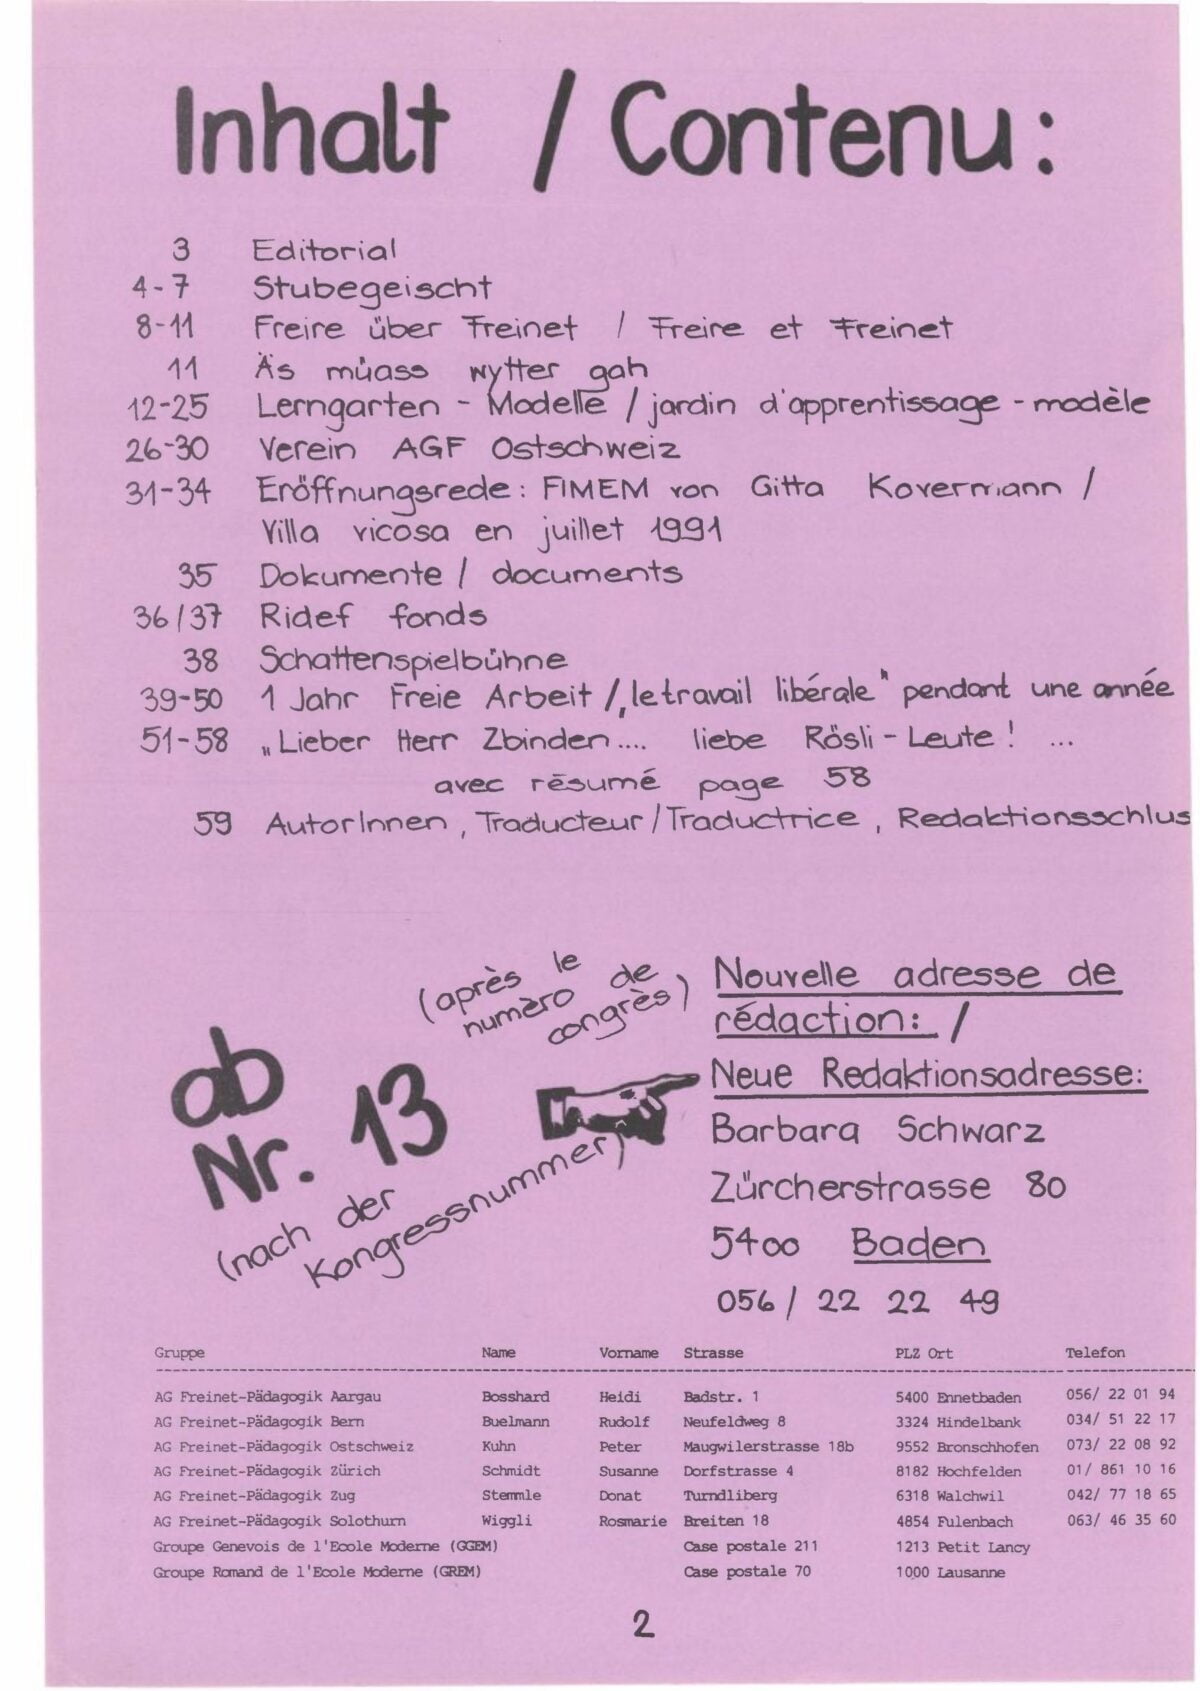 Inhalt / Contenu:
3 Editorial
4-7 Stubegeischt
8-11 Freire über Freinet / Freire et Freinet
11 Äs müass wytter gah
12-25 Lerngarten - Modelle / jardin d'apprentissage - modèle
26-30 Verein AGF Ostschweiz
31-34 Eröffnungsrede: FIMEM von Gitta Kovermann /
Villa vicosa en juillet 1991
35 Dokumente / documents
36/37 Ridef fonds
38 Schattenspielbühne
39-50 1 Jahr Freie Arbeit / „le travail libérale" pendant une année
51-58 „Lieber Herr Zbinden.... liebe Rösli-Leute! ...
avec résumé page 58
59 AutorInnen, Traducteur/Traductrice, Redaktionsschlus
(après le
numèro de
congrès)
ab
Nr. 13
(nach der
Kongressnummer)
Nouvelle adresse de
rédaction: /
Neue Redaktionsadresse:
Barbara Schwarz
Zürcherstrasse 80
5400 Baden
056 / 22 22 49
Gruppe Name Vorname Strasse PLZ Ort Telefon
AG Freinet-Pädagogik Aargau Bosshard Heidi Badstr. 1 5400 Ennetbaden 056/ 22 01 94
AG Freinet-Pädagogik Bern Buelmann Rudolf Neufeldweg 8 3324 Hindelbank 034/ 51 22 17
AG Freinet-Pädagogik Ostschweiz Kuhn Peter Maugwilerstrasse 18b 9552 Bronschhofen 073/ 22 08 92
AG Freinet-Pädagogik Zürich Schmidt Susanne Dorfstrasse 4 8182 Hochfelden 01/ 861 10 16
AG Freinet-Pädagogik Zug Stemmle Donat Turndliberg 6318 Walchwil 042/ 77 18 65
AG Freinet-Pädagogik Solothurn Wiggli Rosmarie Breiten 18 4854 Fulenbach 063/ 46 35 60
Groupe Genevois de l'Ecole Moderne (GGEM) Case postale 211 1213 Petit Lancy
Groupe Romand de l'Ecole Moderne (GREM) Case postale 70 1000 Lausanne
2